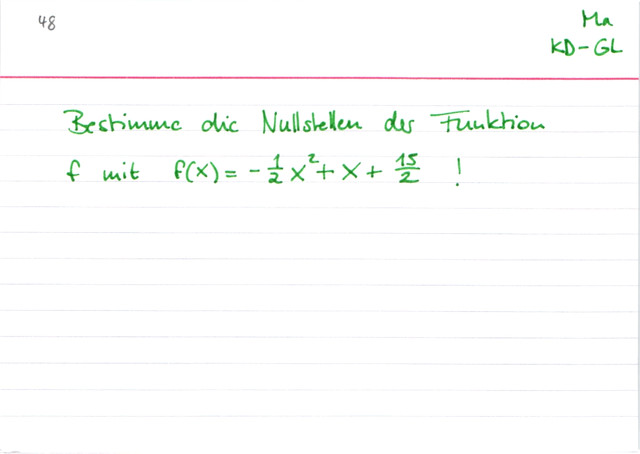 48
Ma
KD-GL
Bestimme die Nullstellen der Funktion
f mit f(x) = -1/2 x² + x + 15/2 !